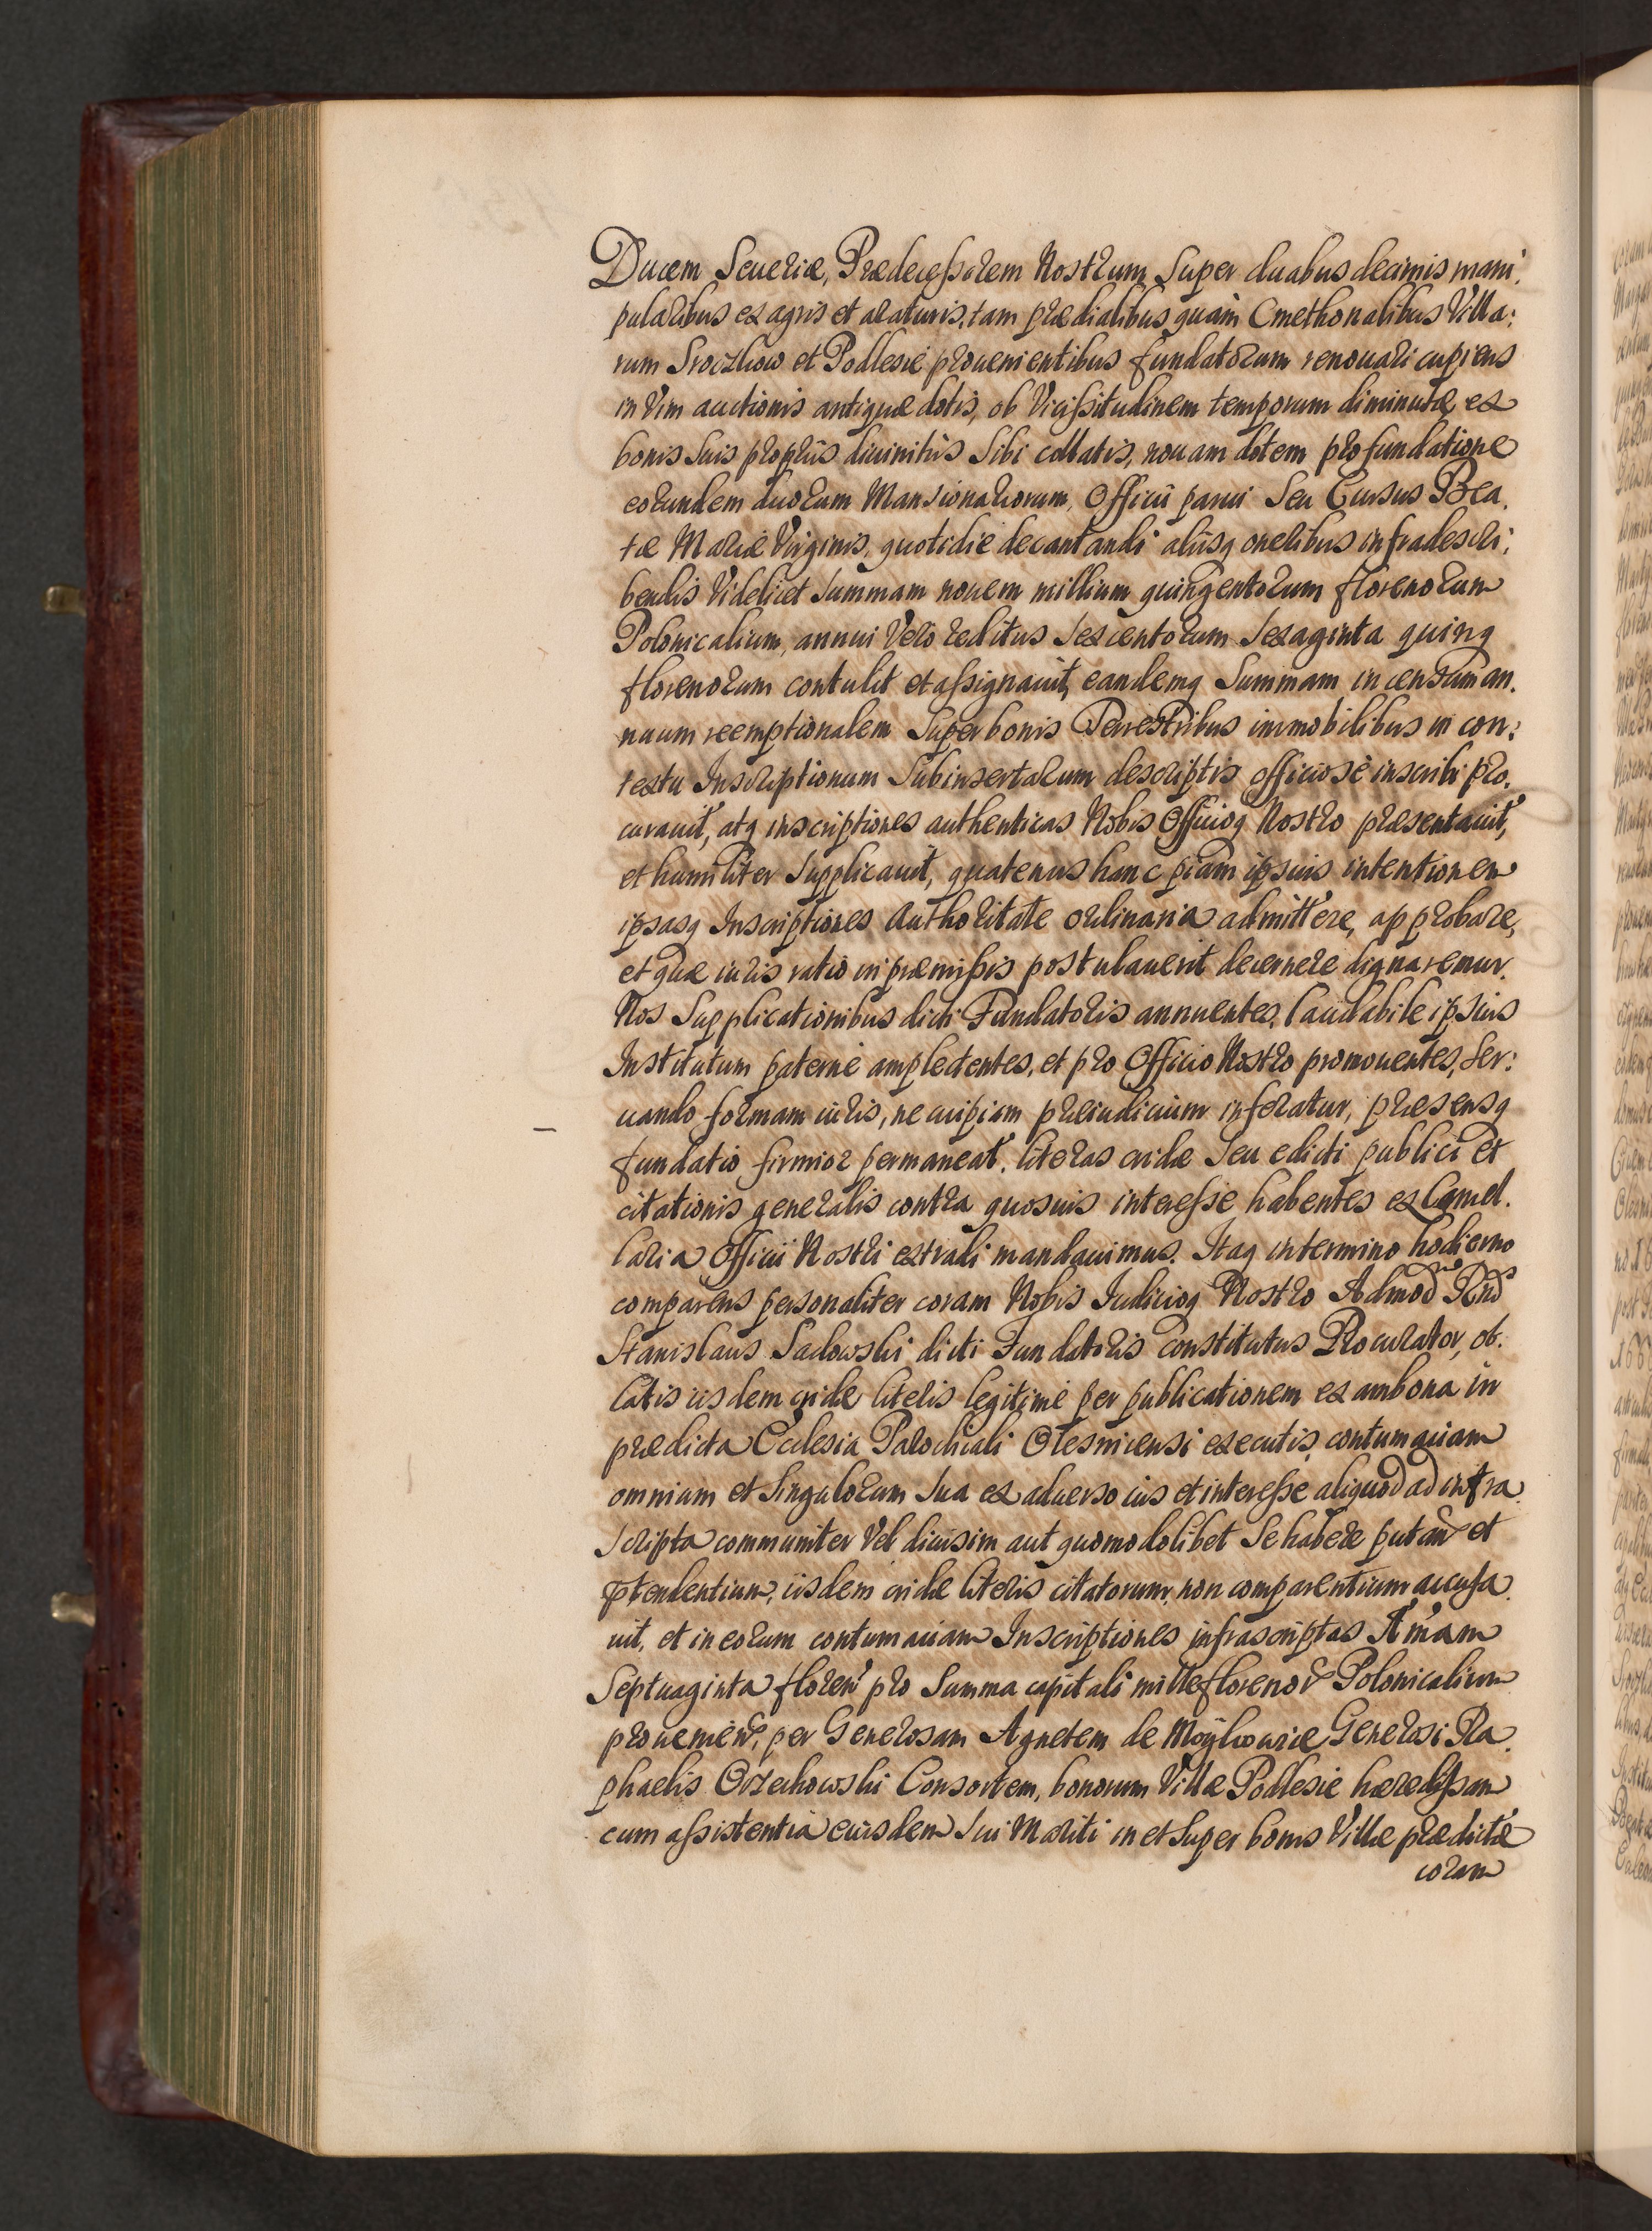 Ducem Seueriæ, Prædecessorem Nostrum Super duabus decimis mani,
pularibus ex agris et araturis, tam prædialibus quàm Cmethonalibus Villa:
rum Sroczkow et Podlesie prouenientibus fundatorum renouari cupiens
in Vim auctionis antiquæ dotis, ob Vicissitudinem temporum diminutæ, ex
bonis suis proprijs diuinitùs Sibi collatis, nouam dotem pro fundatione
eorundem duorum Mansionariorum, Officij parui Seu Cursus Bea,
tæ Mariæ Virginis, quotidie decantandi alijsq oneribus infradescri:
bendis Videlicet Summam nouem millium quingentorum florenorum
Polonicalium, annui Verò reditus Sexcentorum Sexaginta quinq
florenorum contulit et assignauit, eandemq Summam in censum an,
nuum reemptionalem Super bonis Terrestribus immobilibus in con:
textu Inscriptionum Subinsertarum descriptis officiosè inscribi pro,
curauit, atq inscriptiones authenticas Nobis Officioq Nostro præsentauit,
et humiliter Supplicauit, quatenus hanc piam ipsius intentionem
ipsasq Inscriptiones Authoritate ordinaria admittere, approbare,
et quæ iuris ratio in præmissis postulauerit decernere dignaremur.
Nos Supplicationibus dicti Fundatoris annuentes, laudabile ipsius
Institutum paternè amplectentes, et pro Officio Nostro promouentes, Ser:
uando formam iuris, ne cuipiam præiudicium inferatur, præsensq
fundatio firmior permaneat, literas cridæ Seu edicti publici et
citationis generalis contra quosuis interesse habentes ex Cancel,
laria Officij Nostri extradi mandauimus. Itaq in termino hodierno
comparens personaliter coram Nobis Iudicioq Nostro Admod Rnd
Stanislaus Sadowski dicti Fundatoris constitutus Procurator, ob,
latis ijsdem cridæ literis legitimè per publicationem ex ambona in
prædicta Ecclesia Parochiali Olesnicensi executis, contumaciam
omnium et Singulorum Sua ex aduerso ius et interesse aliquod ad infra,
Scripta communiter Vel diuisim aut quomodolibet Se habere putan et
ptendentium, ijsdem cridæ literis citatorum, non comparentium accusa,
uit, et in eorum contumaciam Inscriptiones infrascriptas
Septuaginta floren pro Summa capitali mille floreno Polonicalium
prouenien, per Generosam Agnetem de Generosi Ra,
phaelis Orzechowski Consortem, bonorum Villæ Podlesie hæredissam
cum assistentia eiusdem Sui Mariti in et Super bonis Villæ prædictæ
coram